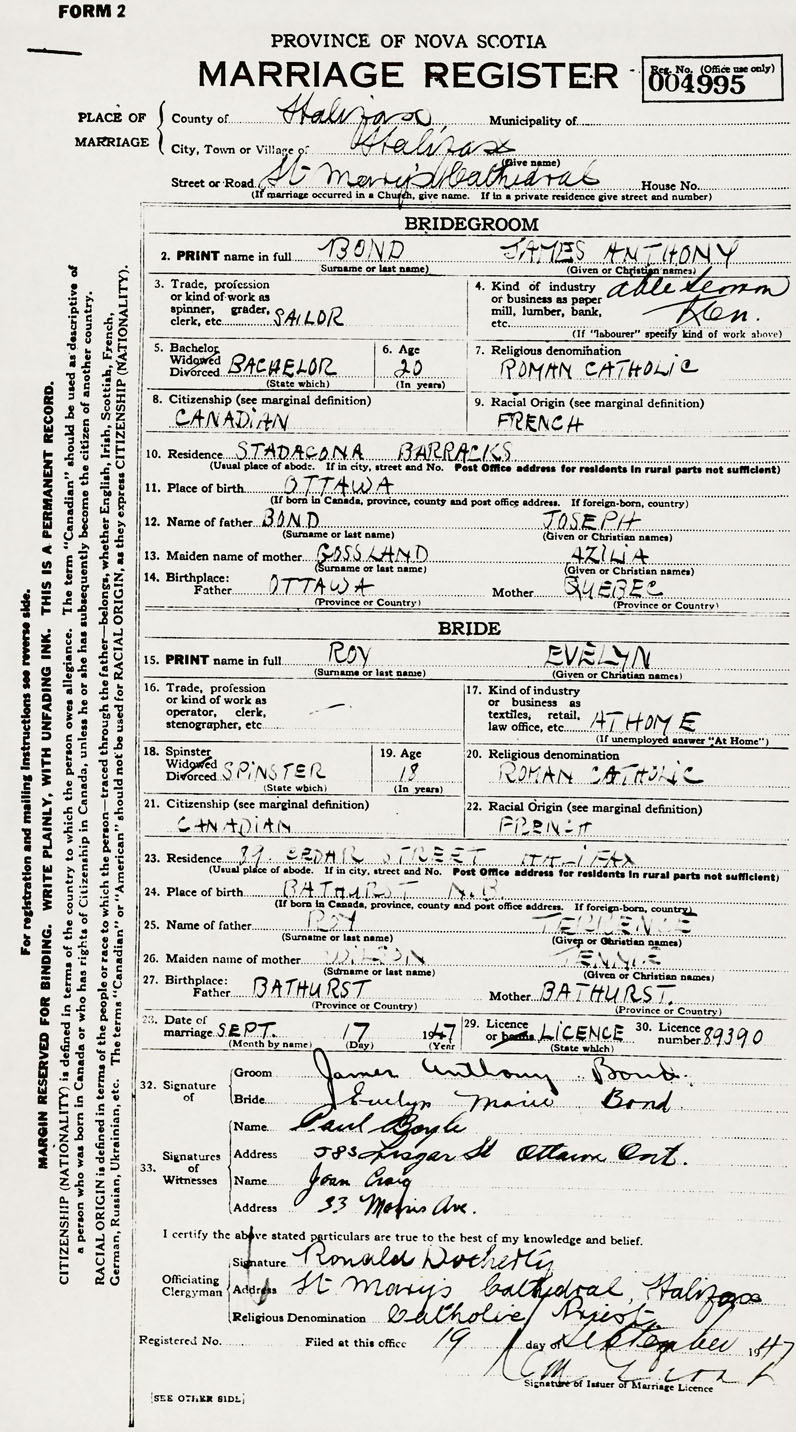 FORM 2
PROVINCE OF NOVA SCOTIA
MARRIAGE REGISTER
Reg. No. (Office use only)
004995
PLACE OF MARRIAGE
County of Halifax Municipality of
City, Town or Village of Halifax
(Give name)
Street or Road St Mary's Cathedral House No.
(If marriage occurred in a Church, give name. If in a private residence give street and number)
BRIDEGROOM
2. PRINT name in full BOND JAMES ANTHONY
(Surname or last name) (Given or Christian names)
3. Trade, profession or kind of work as spinner, grader, clerk, etc. SAILOR
4. Kind of industry or business as paper mill, lumber, bank, etc. able seaman
(If "labourer" specify kind of work above)
5. Bachelor Widowed Divorced BACHELOR
(State which)
6. Age 20
(In years)
7. Religious denomination
ROMAN CATHOLIC
8. Citizenship (see marginal definition)
CANADIAN
9. Racial Origin (see marginal definition)
FRENCH
10. Residence STADACONA BARRACKS
(Usual place of abode. If in city, street and No. Post Office address for residents in rural parts not sufficient)
11. Place of birth OTTAWA
(If born in Canada, province, county and post office address. If foreign-born, country)
12. Name of father BOND JOSEPH
(Surname or last name) (Given or Christian names)
13. Maiden name of mother GOSSLAND AZILIA
(Surname or last name) (Given or Christian names)
14. Birthplace:
Father OTTAWA Mother QUEBEC
(Province or Country) (Province or Country)
BRIDE
15. PRINT name in full ROY EVELYN
(Surname or last name) (Given or Christian names)
16. Trade, profession or kind of work as operator, clerk, stenographer, etc
17. Kind of industry or business as textiles, retail, law office, etc. AT HOME
(If unemployed answer "At Home")
18. Spinster Widowed Divorced SPINSTER
(State which)
19. Age 18
(In years)
20. Religious denomination
ROMAN CATHOLIC
21. Citizenship (see marginal definition)
CANADIAN
22. Racial Origin (see marginal definition)
FRENCH
23. Residence CEDAR STREET HALIFAX
(Usual place of abode. If in city, street and No. Post Office address for residents in rural parts not sufficient)
24. Place of birth BATHURST N.B.
(If born in Canada, province, county and post office address. If foreign-born, country)
25. Name of father ROY TERRENCE
(Surname or last name) (Given or Christian names)
26. Maiden name of mother WILSON JENNIE
(Surname or last name) (Given or Christian names)
27. Birthplace:
Father BATHURST Mother BATHURST.
(Province or Country) (Province or Country)
28. Date of marriage SEPT. 17 1947
(Month by name) (Day) (Year)
29. Licence or banns LICENCE
(State which)
30. Licence number 89390
32. Signature of
Groom James Anthony Bond.
Bride Evelyn Marie Bond
33. Signatures of Witnesses
Name Paul Boyle
Address 583 Lisgar St Ottawa Ont.
Name Joan Craig
Address 33 Morris Ave.
I certify the above stated particulars are true to the best of my knowledge and belief.
Officiating Clergyman
Signature Ronald Docherty
Address St Mary's Cathedral, Halifax
Religious Denomination Catholic Priest
Registered No. Filed at this office 19 day of September 1947
Signature of Issuer of Marriage Licence
[SEE OTHER SIDE]
For registration and mailing instructions see reverse side.
MARGIN RESERVED FOR BINDING. WRITE PLAINLY, WITH UNFADING INK. THIS IS A PERMANENT RECORD.
CITIZENSHIP (NATIONALITY) is defined in terms of the country to which the person owes allegiance. The term "Canadian" should be used as descriptive of
a person who was born in Canada or who has rights of Citizenship in Canada, unless he or she has subsequently become the citizen of another country.
RACIAL ORIGIN is defined in terms of the people or race to which the person—traced through the father—belongs, whether English, Irish, Scottish, French,
German, Russian, Ukrainian, etc. The terms "Canadian" or "American" should not be used for RACIAL ORIGIN, as they express CITIZENSHIP (NATIONALITY).